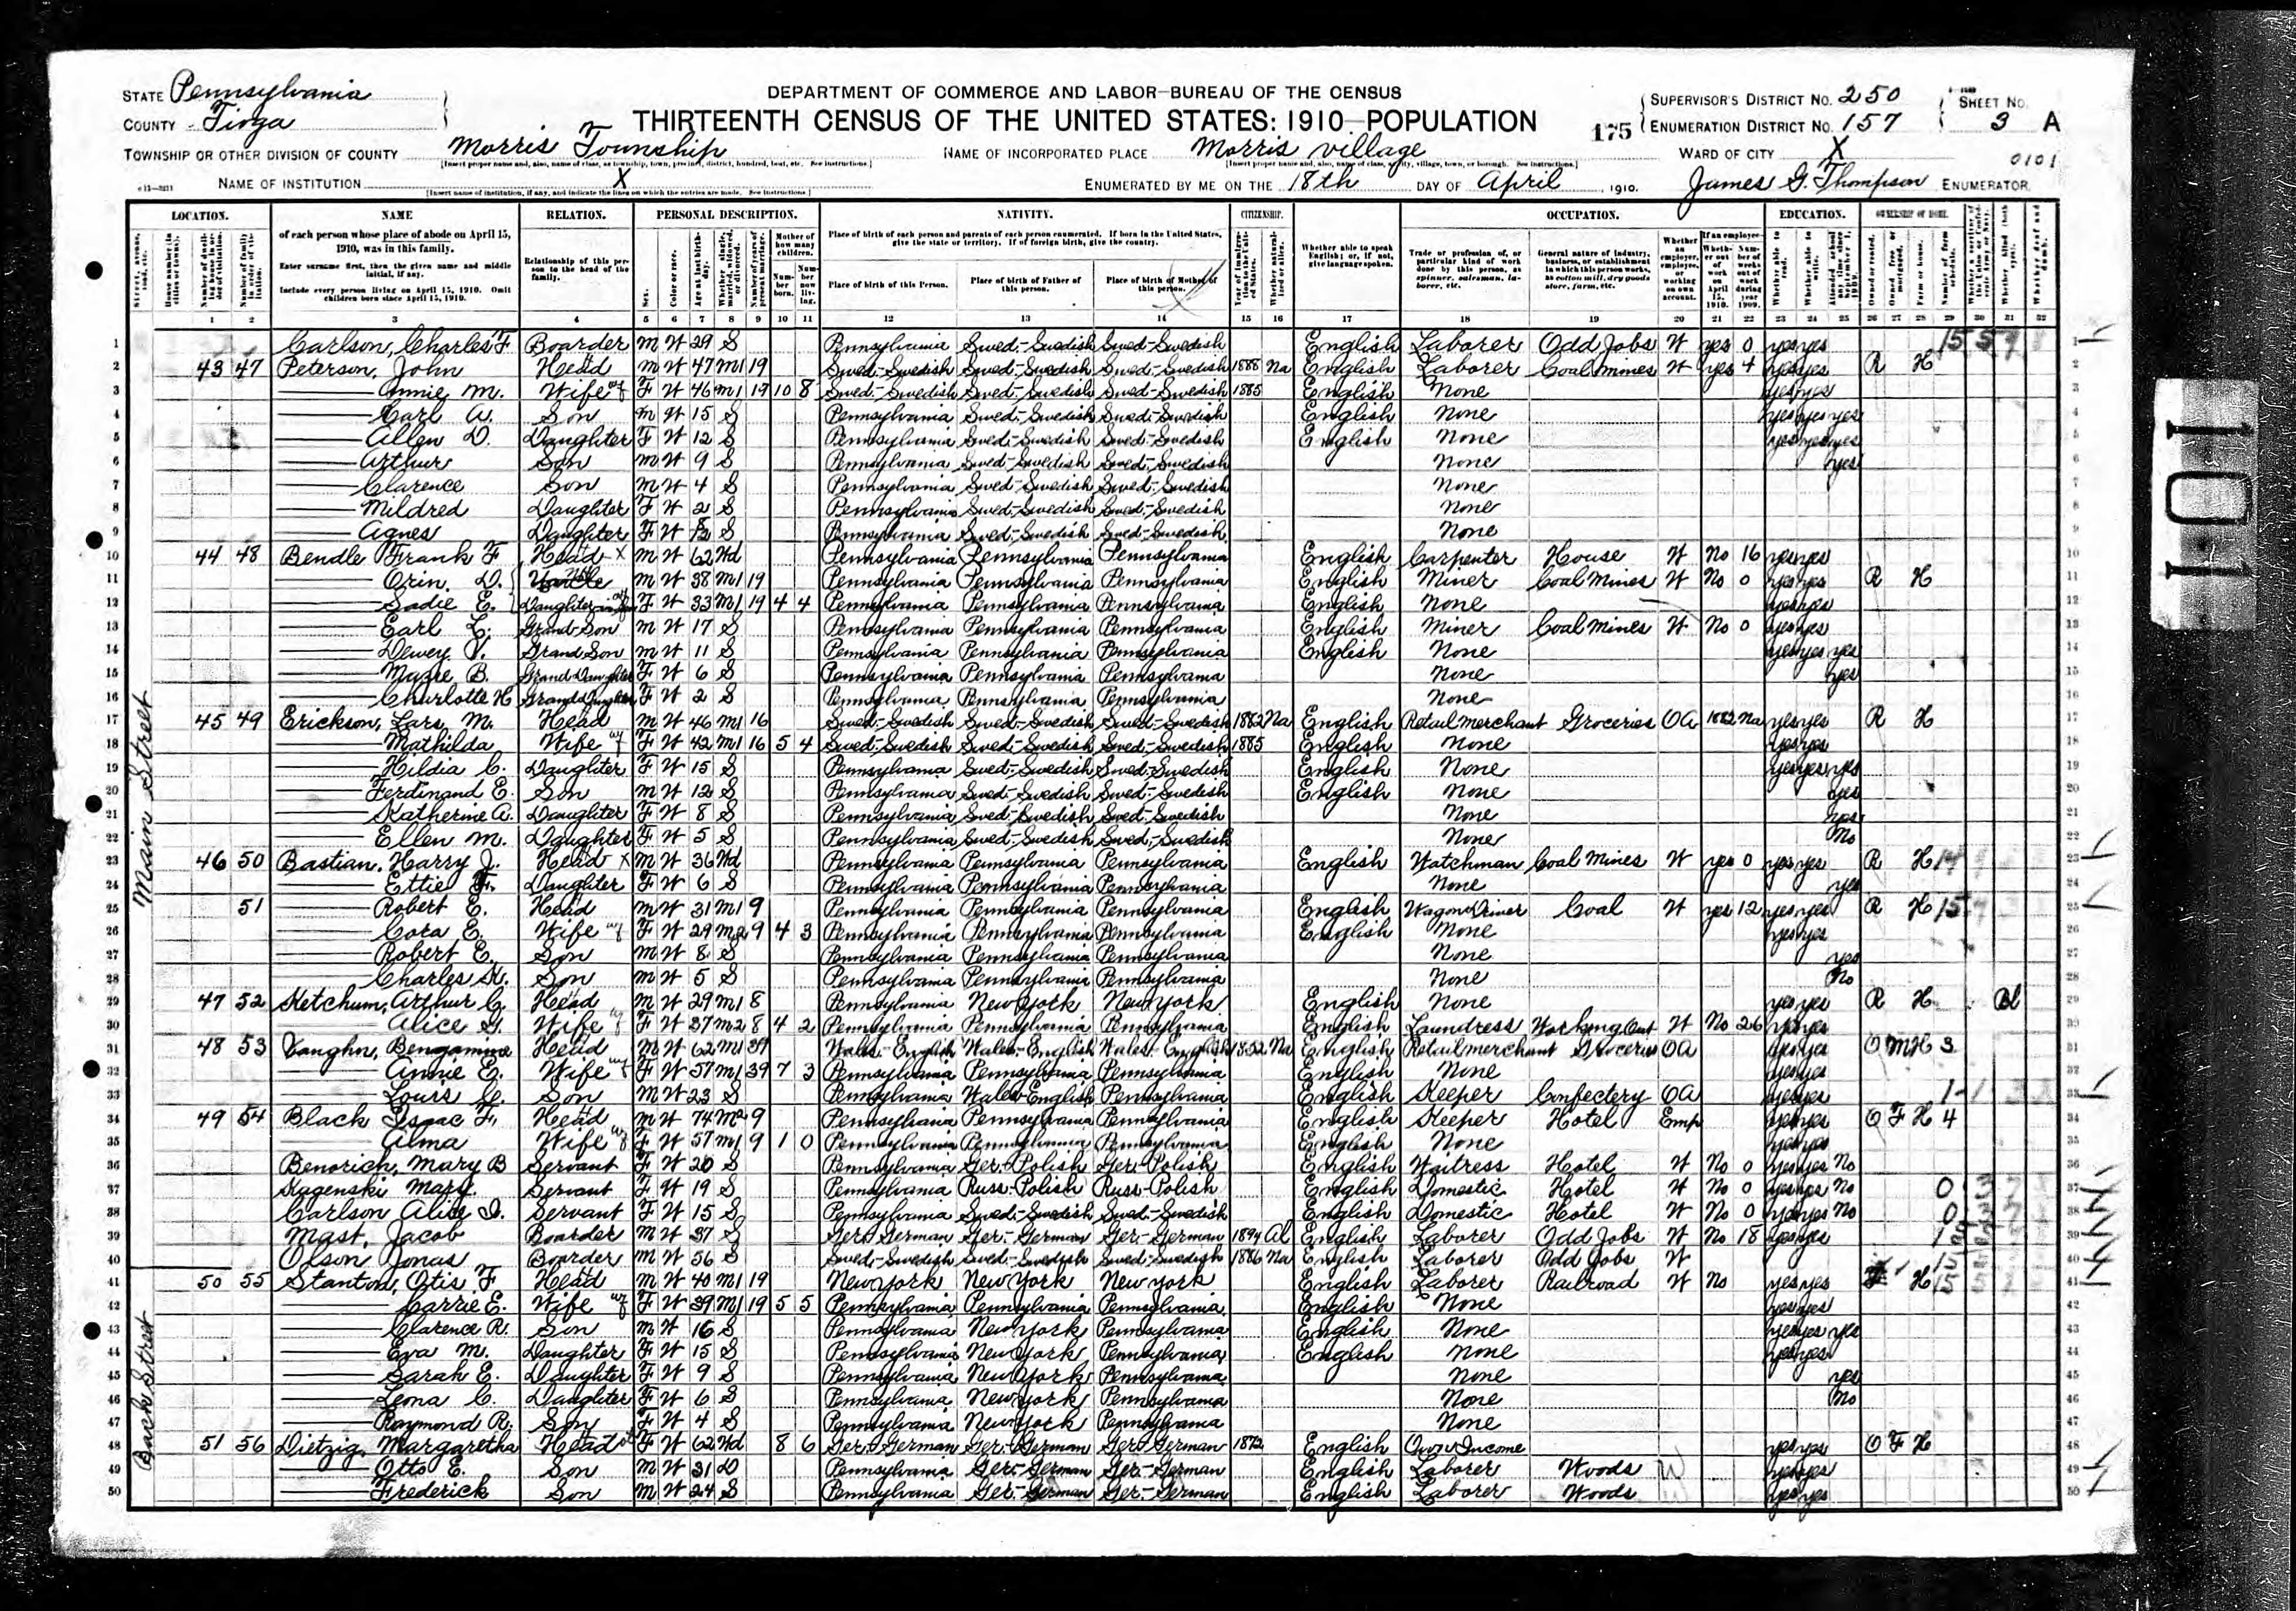 DEPARTMENT OF COMMERCE AND LABOR—BUREAU OF THE CENSUS
THIRTEENTH CENSUS OF THE UNITED STATES: 1910—POPULATION
STATE Pennsylvania
COUNTY Tioga
TOWNSHIP OR OTHER DIVISION OF COUNTY Morris Township
NAME OF INSTITUTION X
NAME OF INCORPORATED PLACE Morris village
ENUMERATED BY ME ON THE 18th DAY OF April, 1910.
175
SUPERVISOR'S DISTRICT NO. 250
ENUMERATION DISTRICT NO. 157
SHEET NO. 3 A
WARD OF CITY X
0101
James G. Thompson ENUMERATOR
LOCATION. NAME RELATION. PERSONAL DESCRIPTION. NATIVITY. CITIZENSHIP. OCCUPATION. EDUCATION. OWNERSHIP OF HOME.
of each person whose place of abode on April 15, 1910, was in this family.
Enter surname first, then the given name and middle initial, if any.
Include every person living on April 15, 1910. Omit children born since April 15, 1910.
Relationship of this person to the head of the family.
Place of birth of each person and parents of each person enumerated. If born in the United States, give the state or territory. If of foreign birth, give the country.
Place of birth of this Person. Place of birth of Father of this person. Place of birth of Mother of this person.
Whether able to speak English; or, if not, give language spoken.
Trade or profession of, or particular kind of work done by this person, as spinner, salesman, laborer, etc.
General nature of industry, business, or establishment in which this person works, as cotton mill, dry goods store, farm, etc.
Main Street
1 Carlson, Charles F Boarder M W 29 S Pennsylvania Swed.-Swedish Swed-Swedish English Laborer Odd Jobs W yes 0 yes yes
2 43 47 Peterson, John Head M W 47 M1 19 Swed-Swedish Swed-Swedish Swed-Swedish 1888 Na English Laborer Coal mines W yes 4 yes yes R H
3 Annie M. Wife F W 46 M1 19 10 8 Swed.-Swedish Swed.-Swedish Swed-Swedish 1885 English None yes yes
4 Carl A. Son M W 15 S Pennsylvania Swed.-Swedish Swed.-Swedish English None yes yes yes
5 Allen D. Daughter F W 12 S Pennsylvania Swed.-Swedish Swed.-Swedish English None yes yes yes
6 Arthur Son M W 9 S Pennsylvania Swed-Swedish Swed-Swedish None yes
7 Clarence Son M W 4 S Pennsylvania Swed-Swedish Swed-Swedish None
8 Mildred Daughter F W 2 S Pennsylvania Swed.-Swedish Swed-Swedish None
9 Agnes Daughter F W S Pennsylvania Swed.-Swedish Swed-Swedish None
10 44 48 Bendle Frank F Head X M W 62 Wd Pennsylvania Pennsylvania Pennsylvania English Carpenter House W No 16 yes yes
11 Orin D. M W 38 M1 19 Pennsylvania Pennsylvania Pennsylvania English Miner Coal Mines W No 0 yes yes R H
12 Sadie E. Daughter F W 33 M1 19 4 4 Pennsylvania Pennsylvania Pennsylvania English None yes yes
13 Earl L. Grand Son M W 17 S Pennsylvania Pennsylvania Pennsylvania English Miner Coal Mines W No 0 yes yes
14 Dewey V. Grand Son M W 11 S Pennsylvania Pennsylvania Pennsylvania English None yes yes yes
15 B. Grand Daughter F W 6 S Pennsylvania Pennsylvania Pennsylvania None yes
16 Charlotte H Grand Daughter F W 2 S Pennsylvania Pennsylvania Pennsylvania None
17 45 49 Erickson, Lars M. Head M W 46 M1 16 Swed-Swedish Swed-Swedish Swed-Swedish 1882 Na English Retail merchant Groceries OA 1882 Na yes yes R H
18 Mathilda Wife F W 42 M1 16 5 4 Swed-Swedish Swed-Swedish Swed-Swedish 1885 English None yes yes
19 Hildia C. Daughter F W 15 S Pennsylvania Swed.-Swedish Swed-Swedish English None yes yes yes
20 Ferdinand E. Son M W 12 S Pennsylvania Swed-Swedish Swed-Swedish English None yes
21 Katherine A. Daughter F W 8 S Pennsylvania Swed-Swedish Swed-Swedish None yes
22 Ellen M. Daughter F W 5 S Pennsylvania Swed-Swedish Swed-Swedish None No
23 46 50 Bastian, Harry J. Head X M W 36 Wd Pennsylvania Pennsylvania Pennsylvania English Watchman Coal Mines W yes 0 yes yes R H
24 Ettie F. Daughter F W 6 S Pennsylvania Pennsylvania Pennsylvania None yes
25 51 Robert E. Head M W 31 M1 9 Pennsylvania Pennsylvania Pennsylvania English Wagon Driver Coal W yes 12 yes yes R H
26 Cora E. Wife F W 29 M2 9 4 3 Pennsylvania Pennsylvania Pennsylvania English None yes yes
27 Robert E. Son M W 8 S Pennsylvania Pennsylvania Pennsylvania None yes
28 Charles H. Son M W 5 S Pennsylvania Pennsylvania Pennsylvania None No
29 47 52 Ketchum, Arthur C. Head M W 29 M1 8 Pennsylvania New York New York English None yes yes R H Bl
30 Alice G. Wife F W 37 M2 8 4 2 Pennsylvania Pennsylvania Pennsylvania English Laundress Working Out W No 26 yes yes
31 48 53 Vaughn, Bengamine Head M W 62 M1 39 Wales-English Wales-English Wales-English 1852 Na English Retail merchant Groceries OA yes yes O M H 3
32 Annie E. Wife F W 57 M1 39 7 3 Pennsylvania Pennsylvania Pennsylvania English None yes yes
33 Louis C. Son M W 23 S Pennsylvania Wales-English Pennsylvania English Keeper Confectery OA yes yes
34 49 54 Black Isaac F. Head M W 74 M2 9 Pennsylvania Pennsylvania Pennsylvania English Keeper Hotel Emp yes yes O F H 4
35 Alma Wife F W 57 M1 9 1 0 Pennsylvania Pennsylvania Pennsylvania English None yes yes
36 Benorich, Mary B Servant F W 20 S Pennsylvania Ger-Polish Ger-Polish English Waitress Hotel W No 0 yes yes No
37 Kagenski Mary. Servant F W 19 S Pennsylvania Russ-Polish Russ-Polish English Domestic Hotel W No 0 yes yes No
38 Carlson Alice D. Servant F W 15 S Pennsylvania Swed.-Swedish Swed-Swedish English Domestic Hotel W No 0 yes yes No
39 Mast, Jacob Boarder M W 37 S Ger. German Ger.-German Ger-German 1894 Al English Laborer Odd Jobs W No 18 yes yes
40 Olson Jonas Boarder M W 56 S Swed-Swedish Swed-Swedish Swed-Swedish 1886 Na English Laborer Odd Jobs W
Back Street
41 50 55 Stanton, Otis F Head M W 40 M1 19 New York New York New York English Laborer Railroad W No yes yes H
42 Carrie E. Wife F W 39 M1 19 5 5 Pennsylvania Pennsylvania Pennsylvania English None yes yes
43 Clarence R. Son M W 16 S Pennsylvania New York Pennsylvania English None yes yes yes
44 Eva M. Daughter F W 15 S Pennsylvania New York Pennsylvania English None yes yes
45 Sarah E. Daughter F W 9 S Pennsylvania New York Pennsylvania None yes
46 Lena C. Daughter F W 6 S Pennsylvania New York Pennsylvania None No
47 Raymond R. Son F W 4 S Pennsylvania New York Pennsylvania None
48 51 56 Dietzig, Margaretha Head F W 62 Wd 8 6 Ger.-German Ger.-German Ger.-German 1872 English Own Income yes yes O F H
49 Otto E. Son M W 31 D Pennsylvania Ger.-German Ger.-German English Laborer Woods W yes yes
50 Frederick Son M W 24 S Pennsylvania Ger.-German Ger.-German English Laborer Woods yes yes
1101